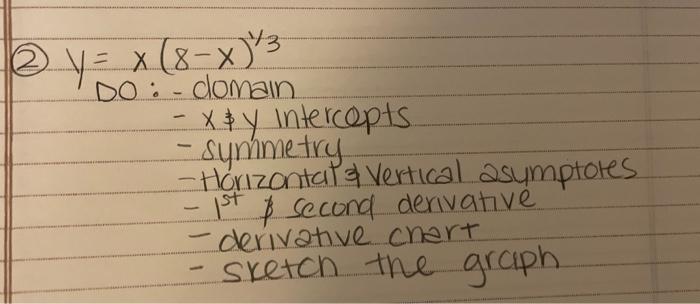 ② y = x(8-x)^1/3
DO: - domain
- x & y intercepts
- symmetry
- Horizontal & Vertical asymptotes
- 1st & second derivative
- derivative chart
- sketch the graph